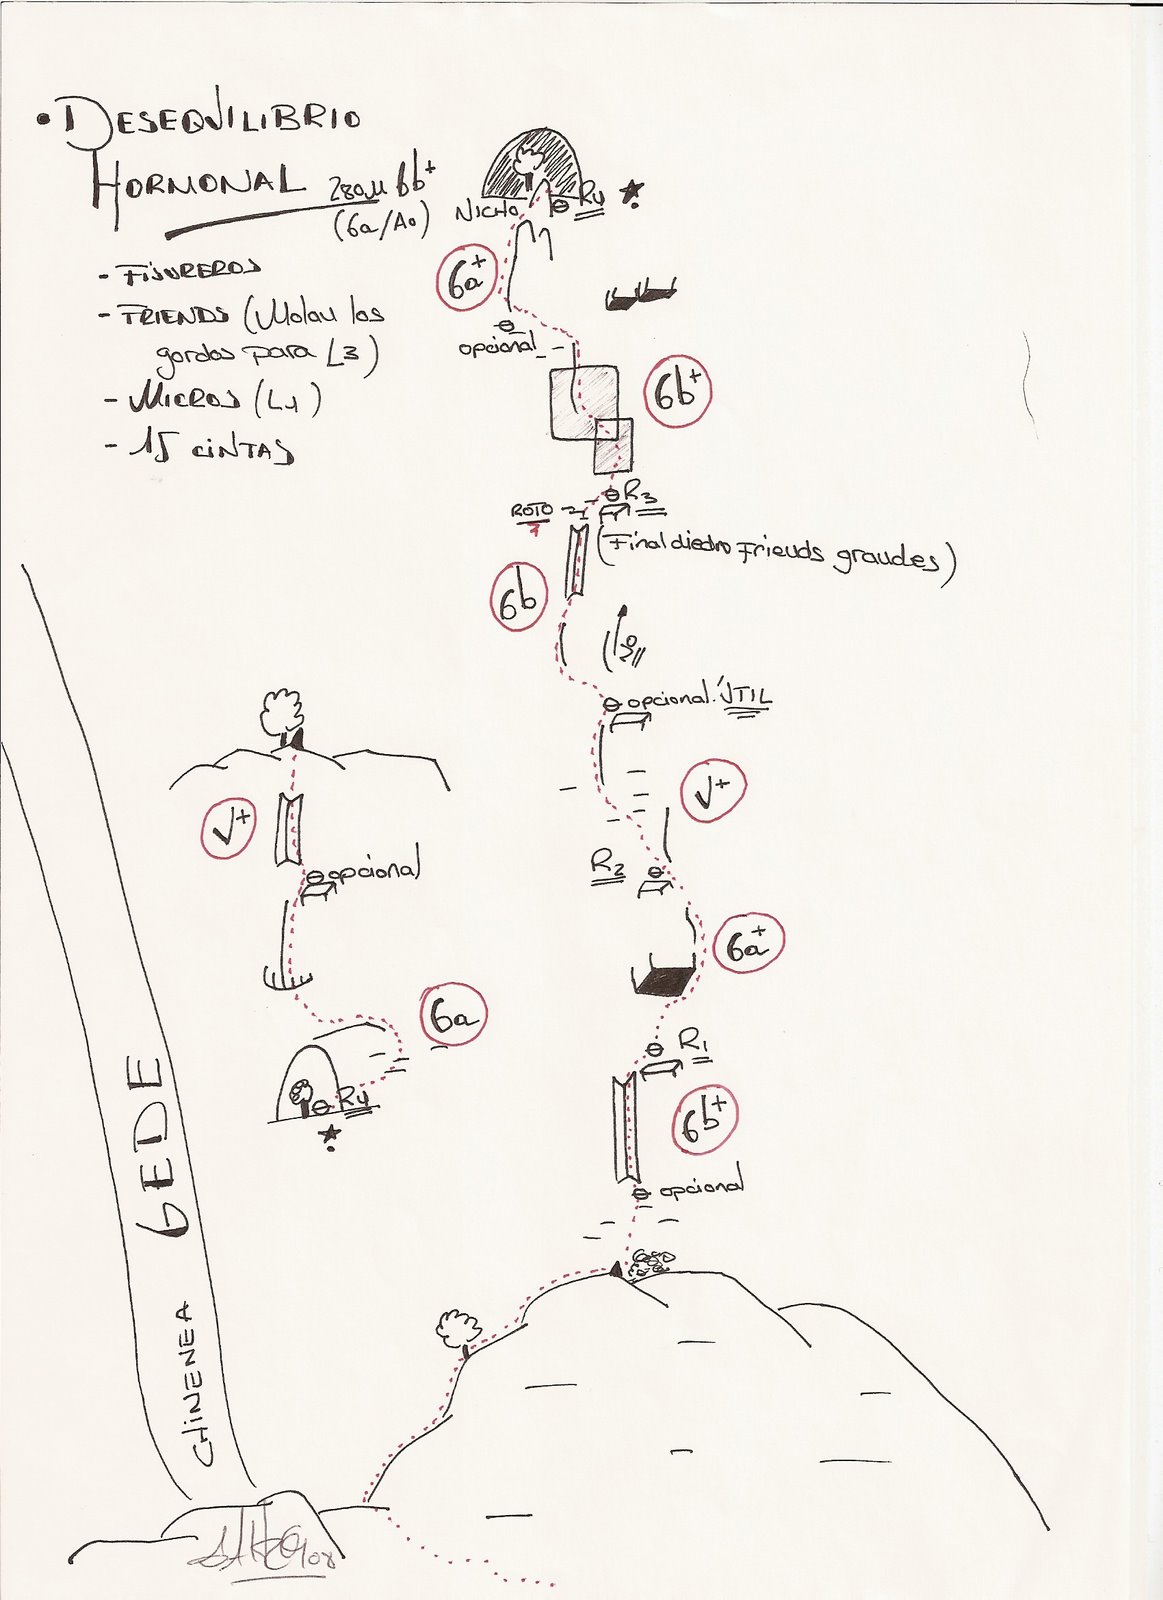 • DESEQUILIBRIO
HORMONAL 280M 6b+
(6a/Ao)
- FISUREROS
- FRIENDS (Molan los
gordos para L3)
- MICROS (L1)
- 15 CINTAS
NICHO R4 *
6a+
opcional
6b+
R3
ROTO
(Final diedro Friends grandes)
6b
opcional. ÚTIL
V+
R2
6a+
R1
6b+
opcional
V+
opcional
6a
R4
*
CHIMENEA GEDE